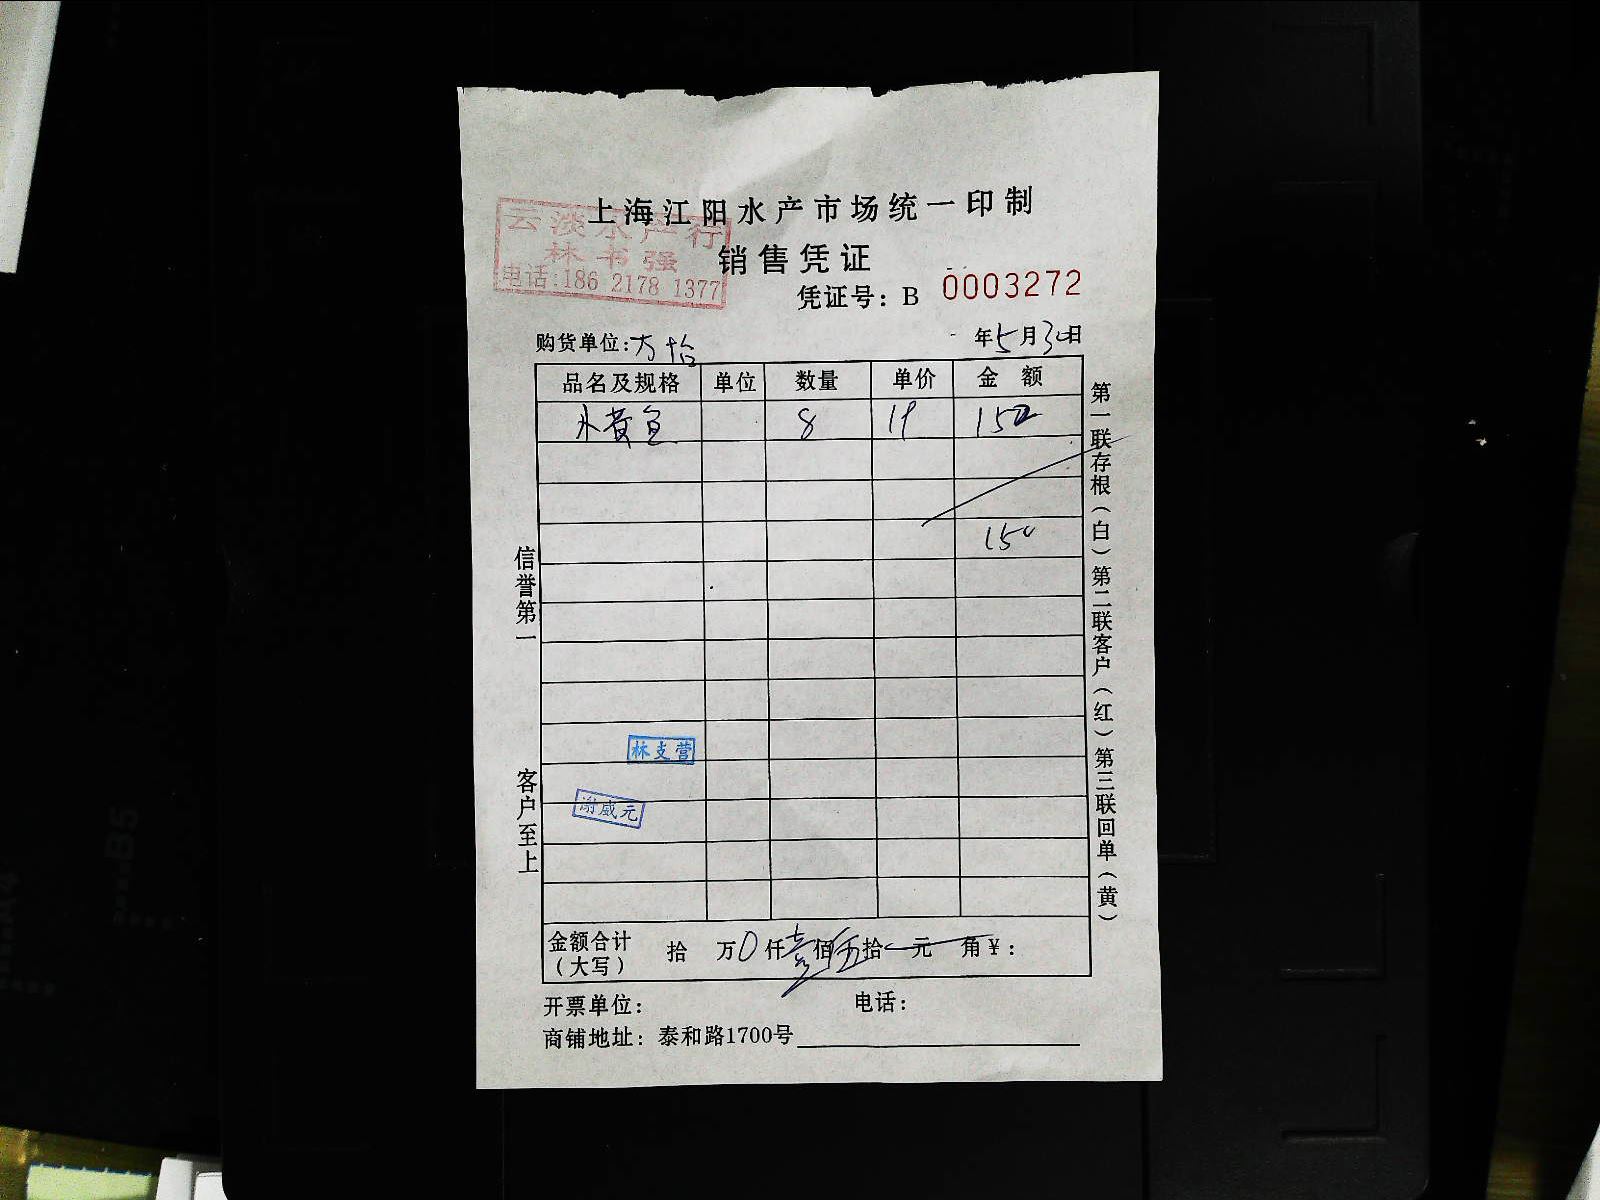 上海江阳水产市场统一印制
云淡水产行
林书强
电话:186 2178 1377
销售凭证
凭证号：B 0003272
购货单位:方怡 年5月30日
品名及规格 单位 数量 单价 金额
小黄鱼 8 19 152
150
信誉第一
客户至上
林支营
谢威元
第一联存根（白）第二联客户（红）第三联回单（黄）
金额合计（大写） 拾 万0仟壹佰伍拾 元 角￥:
开票单位: 电话:
商铺地址: 泰和路1700号